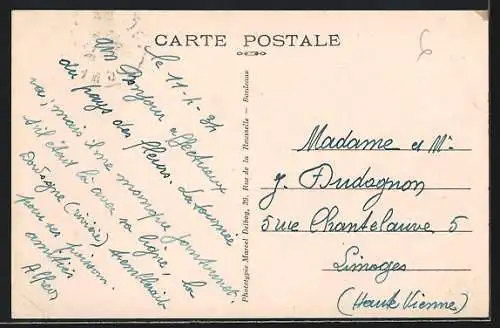 CARTE POSTALE
6
le 11-4-34
Bonjour affectueux
du pays des fleurs. La tournée
va, mais il me manque
s'il était là avec sa ligne, la
Dordogne (rivière) tremblerait
pour ses poissons.
amitiés
Alfred
Phototypie Marcel Delboy, 29, Rue de la Rousselle - Bordeaux
Madame et Mr
J. Dudognon
5 rue Chantelauve 5
Limoges
(Haute Vienne)